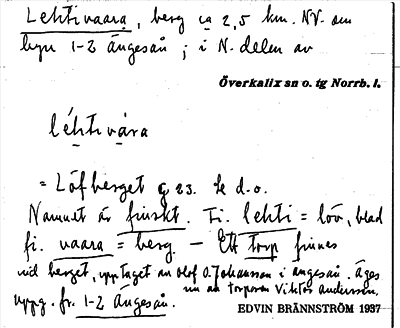 Lehtivaara, berg ca 2,5 km. NV. om
byn 1-2 Ängeså ; i N. delen av
Överkalix sn o. tg Norrb. l.
léhtivára
= Löfberget g 23. Se d.o.
Namnet är finskt. Fi. lehti = löv, blad
fi. vaara = berg. — Ett torp finnes
vid berget, upptaget av Olof O. Johansson i Ängeså. Äges
nu av torparen Viktor Andersson.
uppg. fr. 1-2 Ängeså.
EDVIN BRÄNNSTRÖM 1937